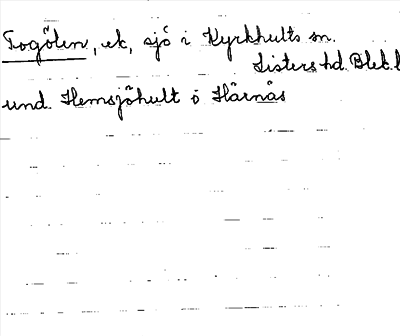 Fogölen, ek, sjö i Kyrkhults sn.
Listers hd. Blek. l
und. Hemsjöhult o Härnås